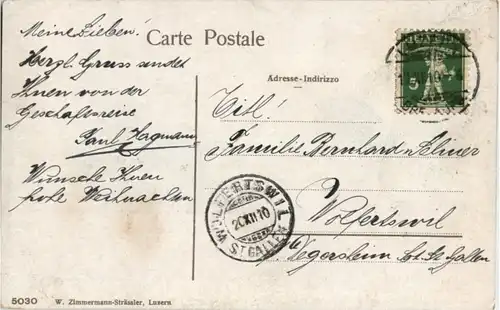 Meine Lieben!
Herzl. Gruss sendet
Ihnen von der
Geschäftsreise
Paul Hagmann
Wünsche Ihnen
frohe Weihnachten
Carte Postale
Adresse-Indirizzo
Titl!
Familie Bernhard
Wolfertswil
Degersheim Ct. St. Gallen
WOLFERTSWIL
20.XII.10
ST. GALLEN
HELVETIA
5
5030 W. Zimmermann-Strässler, Luzern.